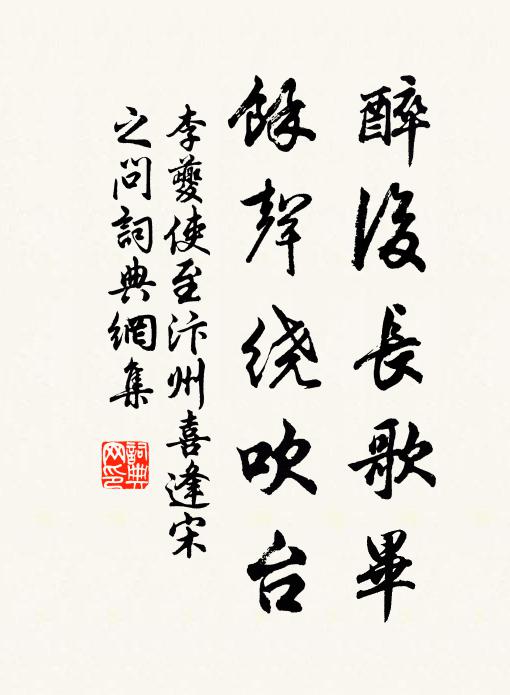 醉後長歌畢
餘聲绕吹台
李夔使至汴州喜逢宋
之问詞典網集
詞典
网印